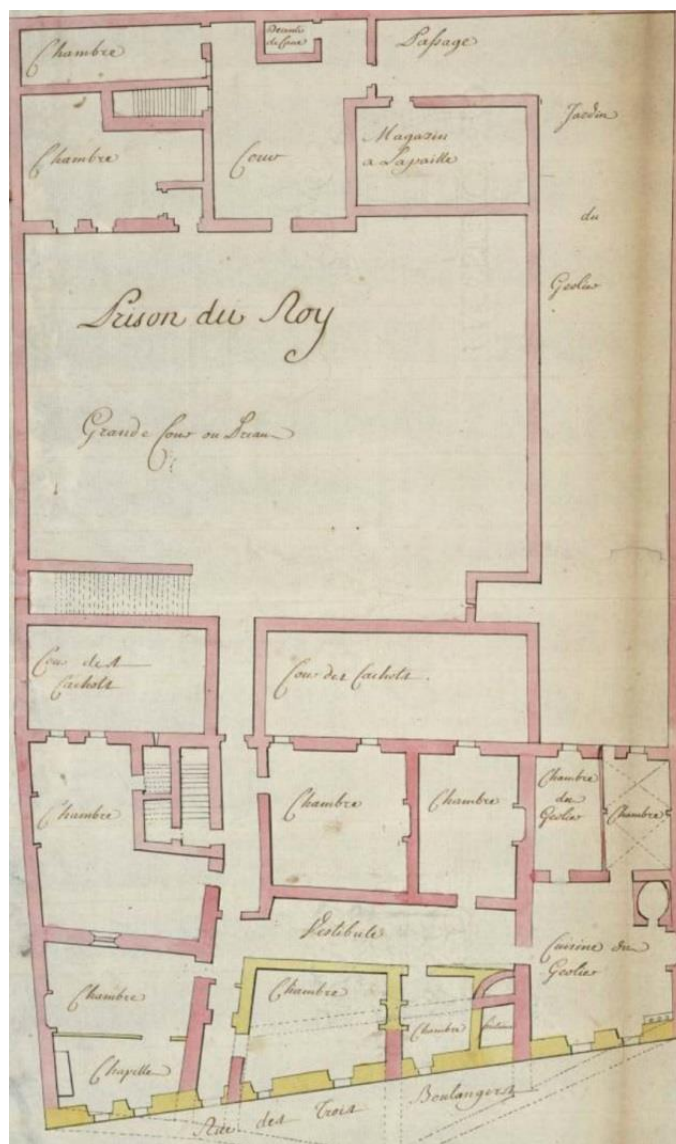 Chambre
Passage
Jardin
du
Geolier
Chambre
Cour
Magazin
a Lapaille
Prison du Roy
Grande Cour ou Preau
Cour des
Cachots
Cour des Cachots.
Chambre
Chambre
Chambre
Chambre
du
Geolier
Chambre
Vestibule
Cuisine du
Geolier
Chambre
Chambre
Chambre
Chapelle
Rue des Trois Boulangers